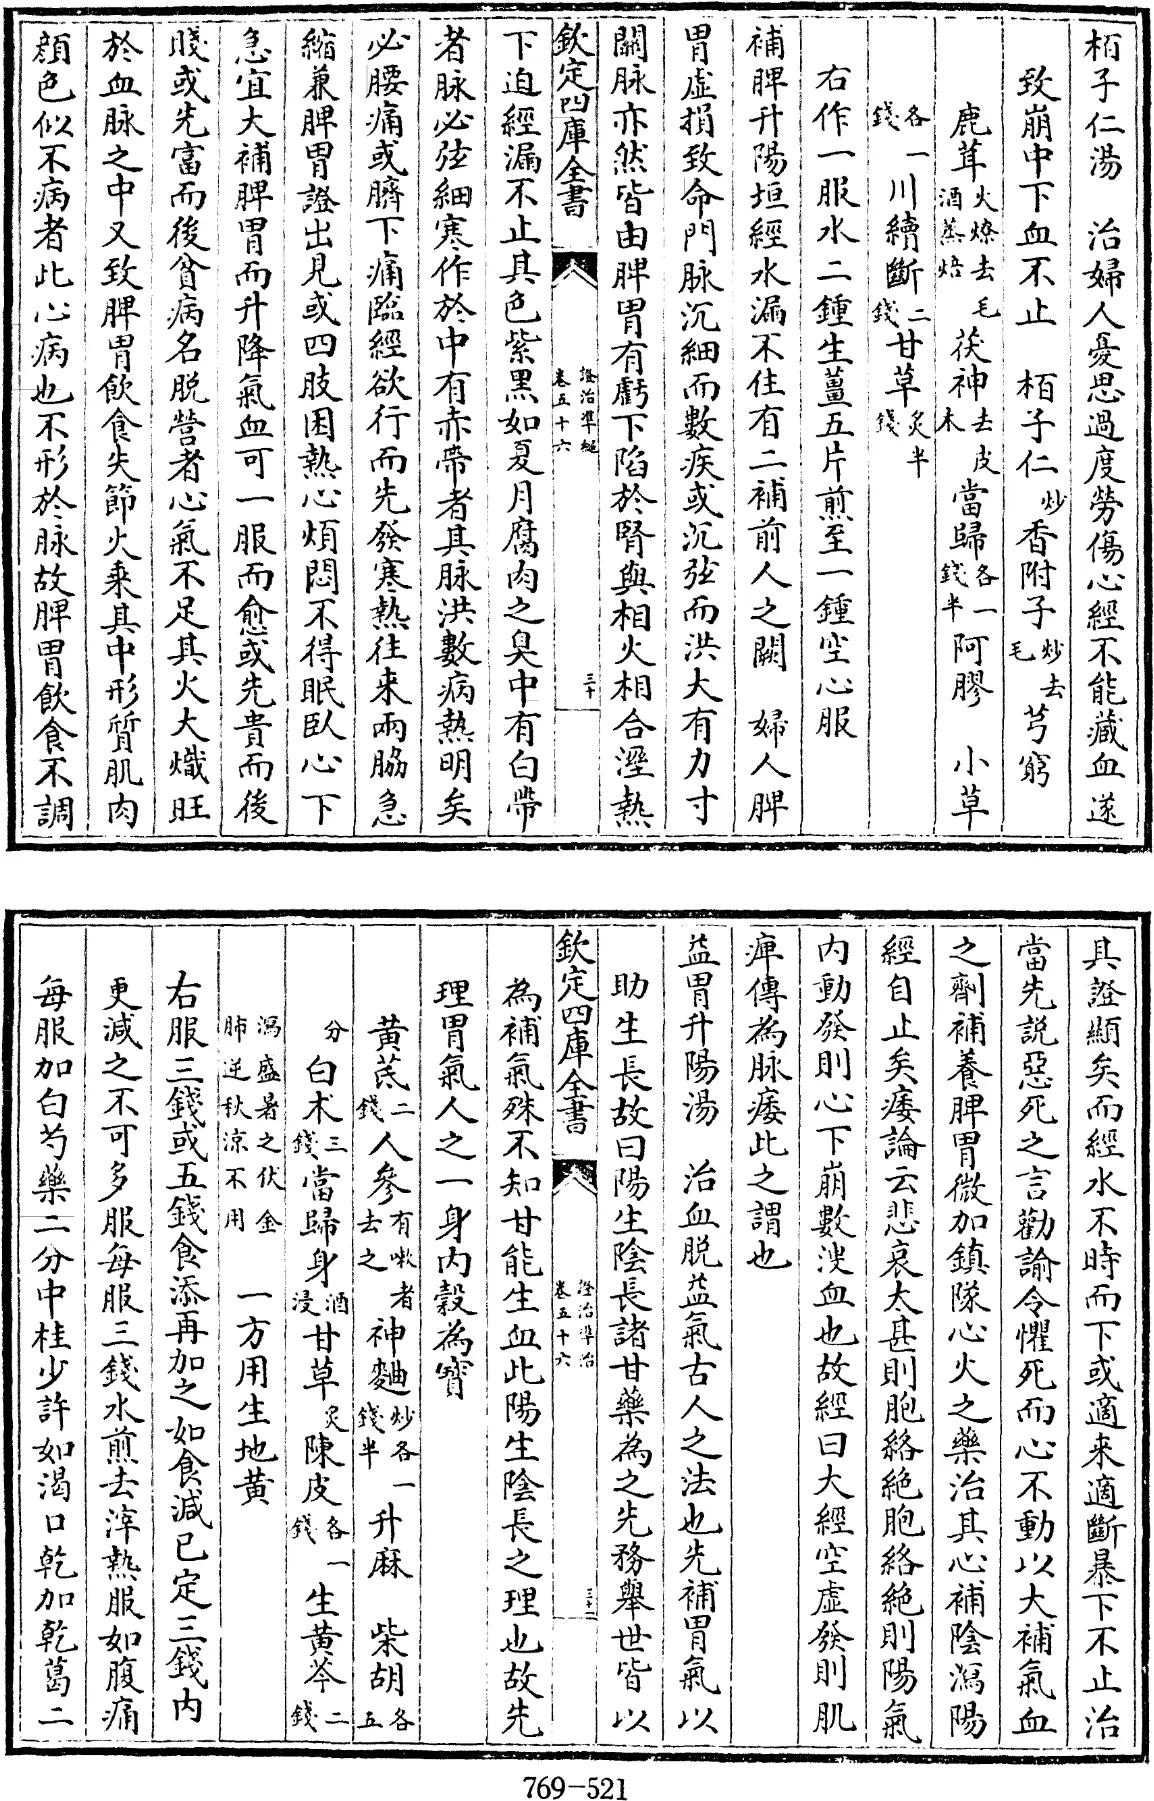 栢子仁湯　治婦人憂思過度勞傷心經不能藏血遂
致崩中下血不止　栢子仁炒香附子炒去毛芎窮
鹿茸火燎去毛酒蒸焙　茯神去皮木當歸各一錢半阿膠　小草
各一錢川續斷二錢甘草炙半錢
右作一服水二鍾生薑五片煎至一鍾空心服
補脾升陽垣經水漏不住有二補前人之闕　婦人脾
胃虛損致命門脉沉細而數疾或沉弦而洪大有力寸
關脉亦然皆由脾胃有虧下陷於腎與相火相合溼熱
欽定四庫全書
證治準繩
卷五十六
三十
下迫經漏不止其色紫黑如夏月腐肉之臭中有白帶
者脉必弦細寒作於中有赤帶者其脉洪數病熱明矣
必腰痛或臍下痛臨經欲行而先發寒熱往來兩脇急
縮兼脾胃證出見或四肢困熱心煩悶不得眠臥心下
急宜大補脾胃而升降氣血可一服而愈或先貴而後
賤或先富而後貧病名脱營者心氣不足其火大熾旺
於血脉之中又致脾胃飲食失節火乘其中形質肌肉
顔色似不病者此心病也不形於脉故脾胃飲食不調
其證顯矣而經水不時而下或適来適斷暴下不止治
當先説惡死之言勸諭令懼死而心不動以大補氣血
之劑補養脾胃微加鎮隊心火之藥治其心補陰瀉陽
經自止矣痿論云悲哀太甚則胞絡絶胞絡絶則陽氣
内動發則心下崩數溲血也故經曰大經空虛發則肌
痺傳為脉痿此之謂也
益胃升陽湯　治血脱益氣古人之法也先補胃氣以
助生長故曰陽生陰長諸甘藥為之先務舉世皆以
欽定四庫全書
證治準治
卷五十六
三十一
為補氣殊不知甘能生血此陽生陰長之理也故先
理胃氣人之一身内穀為寳
黄茋二錢人參有嗽者去之神麯炒各一錢半升麻　柴胡各五
分白术三錢當歸身酒浸甘草炙陳皮各一錢生黄芩二錢
瀉盛暑之伏金肺逆秋涼不用　一方用生地黄
右服三錢或五錢食添再加之如食減已定三錢内
更減之不可多服每服三錢水煎去滓熱服如腹痛
每服加白芍藥二分中桂少許如渇口乾加乾葛二
769-521